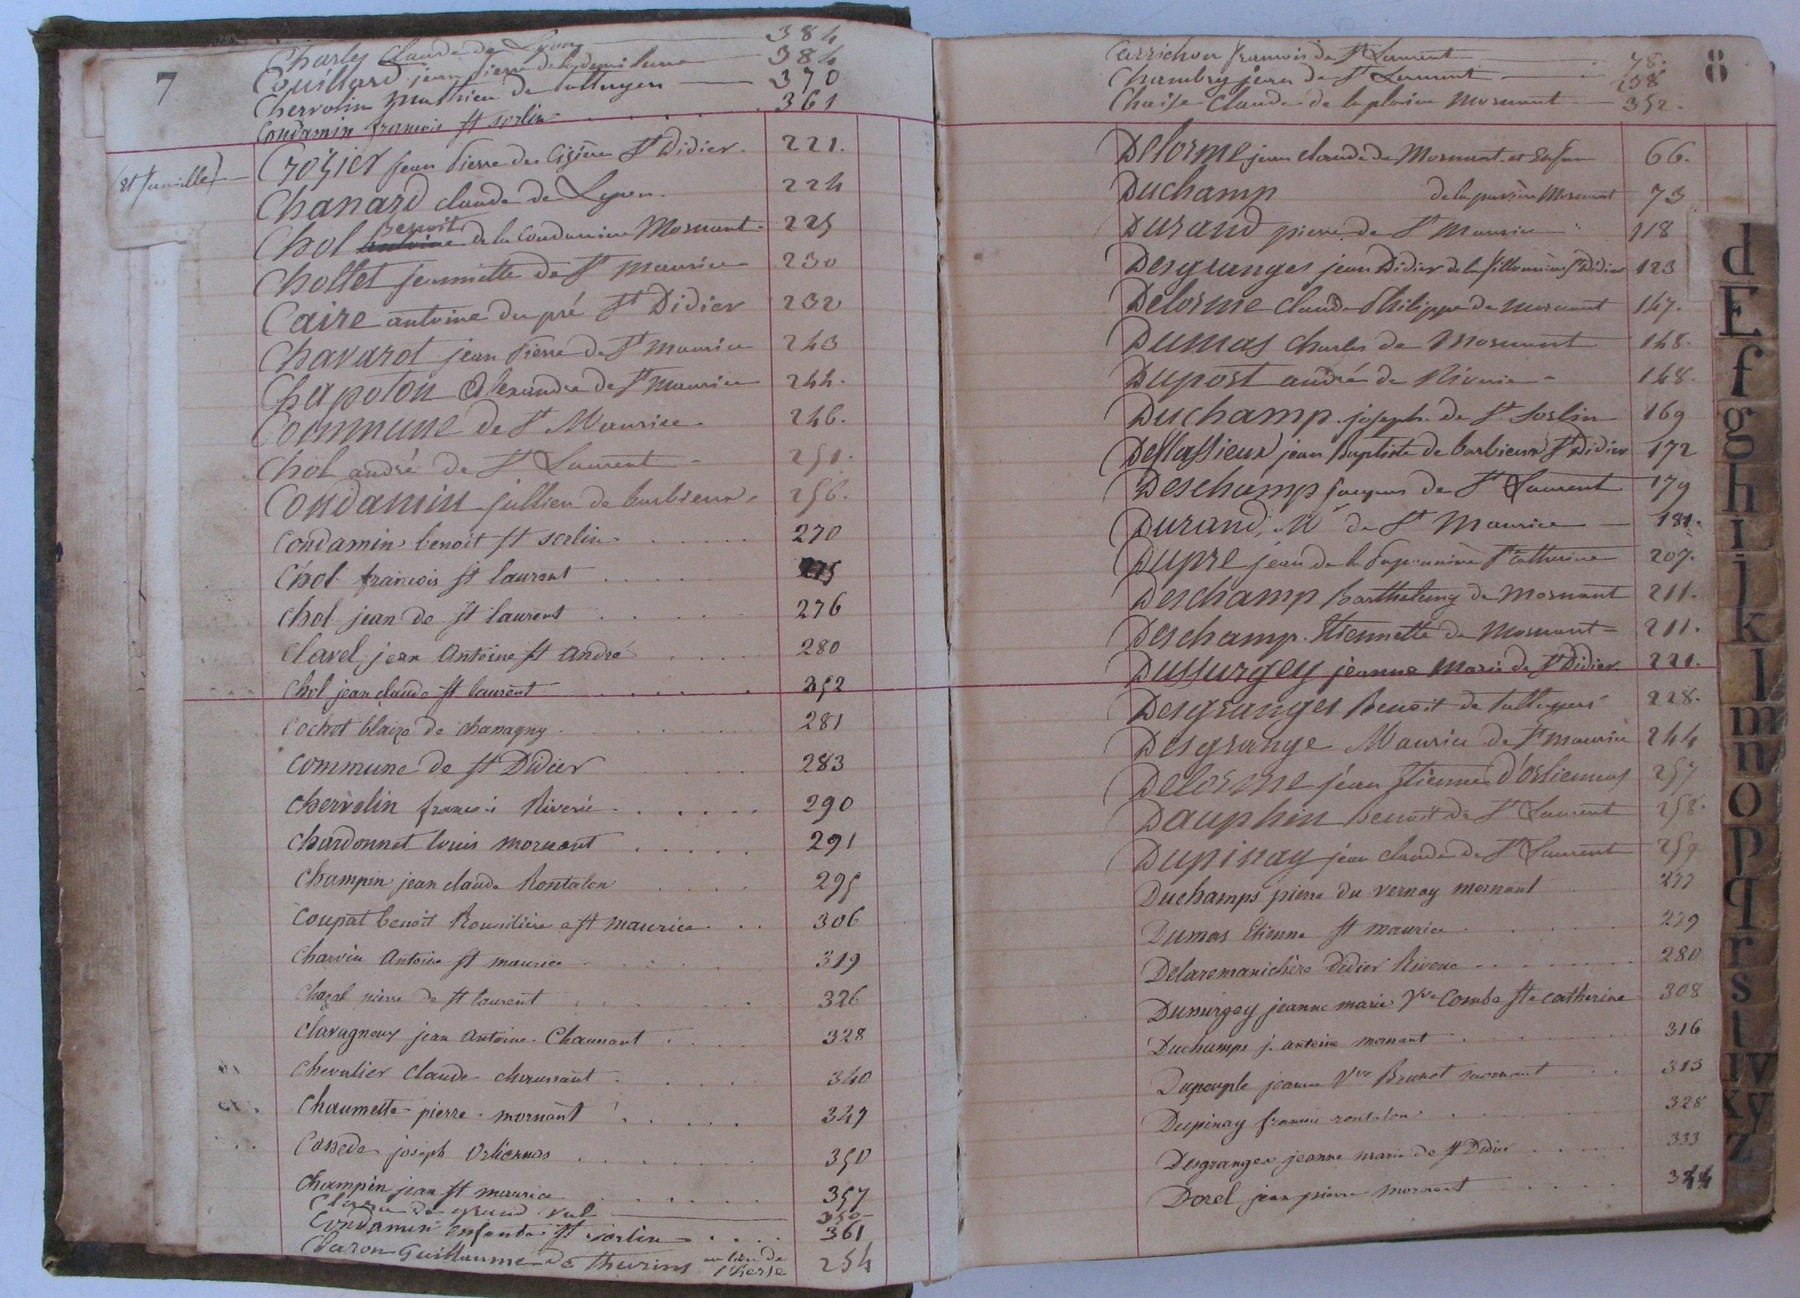 7
Charles Claude de Lyon 384
Couillard jean pierre de la demi lune 384
Chervolin Mathieu de talluyers 370
Condamin francois st sorlin 361
(et famille) Crozier jean Pierre du Cizière St Didier. 221.
Chanard claude de Lyon. 224
Chol Benoit de la Condamine Mornant 225
Chollet jeannette de St Maurice 230
Caire antoine du pré St Didier 232
Chavarot jean Pierre de St Maurice 243
Chapoton Alexandre de St Maurice 244.
Commune de St Maurice. 246.
Chol andré de St Laurent 251.
Condamin jullien de barbieux 256.
Condamin benoit st sorlin 270
Chol francois st laurent
Chol jean de st laurent 276
Clavel jean Antoine st André 280
Chol jean claude st laurent 352
Cochet blaize de chassagny 281
Commune de st Didier 283
Chervolin francois Riverie 290
Chardonnet louis mornant 291
Champin jean claude Rontalon 295
Coupat benoit Rousilière a st maurice 306
Charvin Antoine st maurice 319
Chazal pierre de st laurent 326
Clavagneux jean Antoine Chaussant 328
Chevalier Claude chaussant 340
Chaumette pierre mornant 349
Cassede joseph Orliennas 350
Champin jean st maurice 357
de grand val 350
Condamin enfants st sorlin 361
Charon Guillaume de Thurins au lieu de 254
8
Carrichon francois de St Laurent 78.
Chambry jean de St Laurent 258
Chaise Claude de la plaine Mornant 352.
Delorme jean claude de Mornant et Enfans 66.
Duchamp de la Mornant 73
Durand pierre de St Maurice 118
Desgranges jean Didier de la St Didier 123
Delorme Claude Philippe de mornant 147.
Dumas Charles de Mornant 148.
Dupost andré de Riverie 148.
Duchamp joseph de St Sorlin 169
Deflassieux jean Baptiste de barbieux St Didier 172
Deschamp jacques de St Laurent 179
Durand Mr de St Maurice 181.
Dupré jean de la Ste Catherine 207.
Deschamp Barthelemy de Mornant 211.
Deschamp Etiennette de Mornant 211.
Dussurgey jeanne Marie de St Didier 221.
Desgranges Benoit de talluyers 228.
Desgrange Maurice de St maurice 244
Delorme jean Etienne d'Orliennas 257
Dauphin Benoit de St Laurent 258.
Dupinay jean claude de St Laurent 259
Duchamps pierre du vernay mornant 277
Dumas Etienne st maurice 279
Delaromanichère Didier Riverie 280
Dussurgey jeanne marie Vve Combe Ste catherine 308
Duchamps j. antoine mornant 316
Dupeuple jeanne Vve Brunet mornant 313
Dupinay francois rontalon 328
Desgranges jeanne marie de st Didier 333
Dorel jean pierre mornant 344
d
E
f
g
h
i
j
k
l
m
n
o
p
q
r
s
t
uv
xy
z